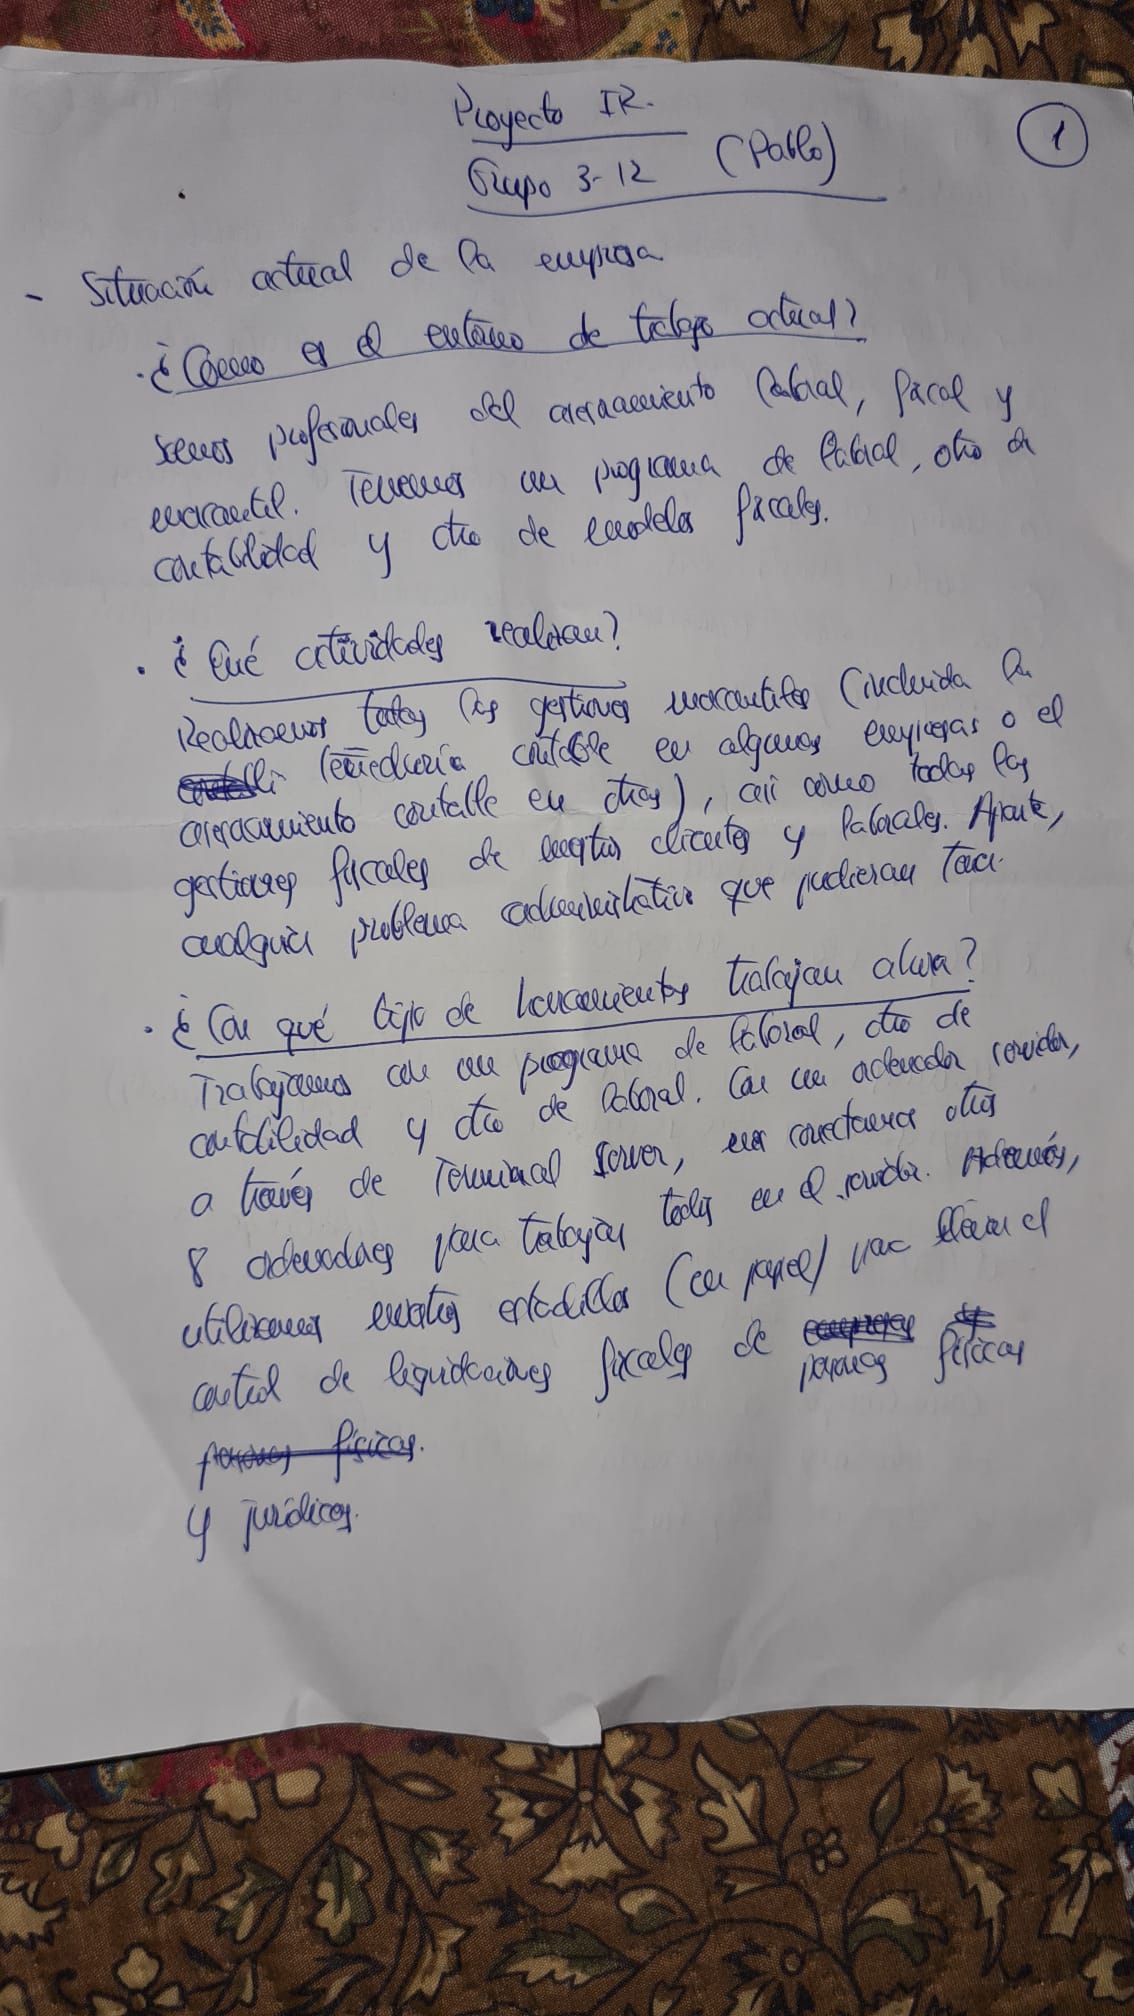 Proyecto IR.
Grupo 3-12 (Pablo)
1
- Situación actual de la empresa
· ¿Cómo es el entorno de trabajo actual?
Somos profesionales del asesoramiento laboral, fiscal y
mercantil. Tenemos un programa de laboral, otro de
contabilidad y otro de modelos fiscales.
· ¿Qué actividades realizan?
Realizamos todas las gestiones mercantiles (incluida la
teneduría contable en algunas empresas o el
asesoramiento contable en otras), así como todas las
gestiones fiscales de nuestros clientes y laborales. Aparte,
cualquier problema administrativo que pudieran tener.
· ¿Con qué tipo de herramientas trabajan ahora?
Trabajamos con un programa de laboral, otro de
contabilidad y otro de laboral. Con un ordenador servidor,
a través de Terminal Server, se conectan otros
8 ordenadores para trabajar todos en el servidor. Además,
utilizamos nuestros estadillos (en papel) para llevar el
control de liquidaciones fiscales de empresas personas físicas
personas físicas.
y jurídicas.